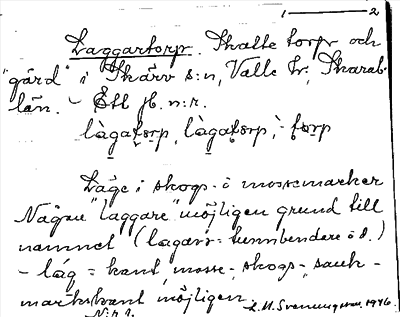 1 — 2
Laggartorp. Skatte torp och
"gård" i Skärv s:n, Valle hr, Skarab.
län. - Ett jb. n:r.
làgatorp, làgatorp, - torp
Läge i skogs- o mossemarker
Någon "laggare" möjligen grund till
namnet (lagare = tunnbindare o d.)
- lág = kant, mosse-, skogs-, sank-
markskant möjligen.
L. M. Svenungsson. 1946.